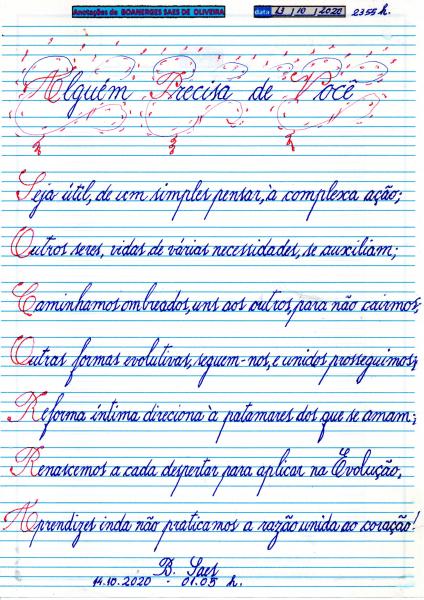 Anotações de BOANERGES SAES DE OLIVEIRA data 13 | 10 | 2020 2355 h.
Alguém Precisa de Você
Seja útil, de um simples pensar, à complexa ação;
Outros seres, vidas de várias necessidades, se auxiliam;
Caminhamos ombreados, uns aos outros, para não cairmos;
Outras formas evolutivas, seguem-nos, e unidos prosseguimos;
Reforma íntima direciona à patamares dos que se amam;
Renascemos a cada despertar para aplicar na Evolução,
Aprendizes inda não praticamos a razão unida ao coração!
B. Saes
14.10.2020 - 01.05 h.